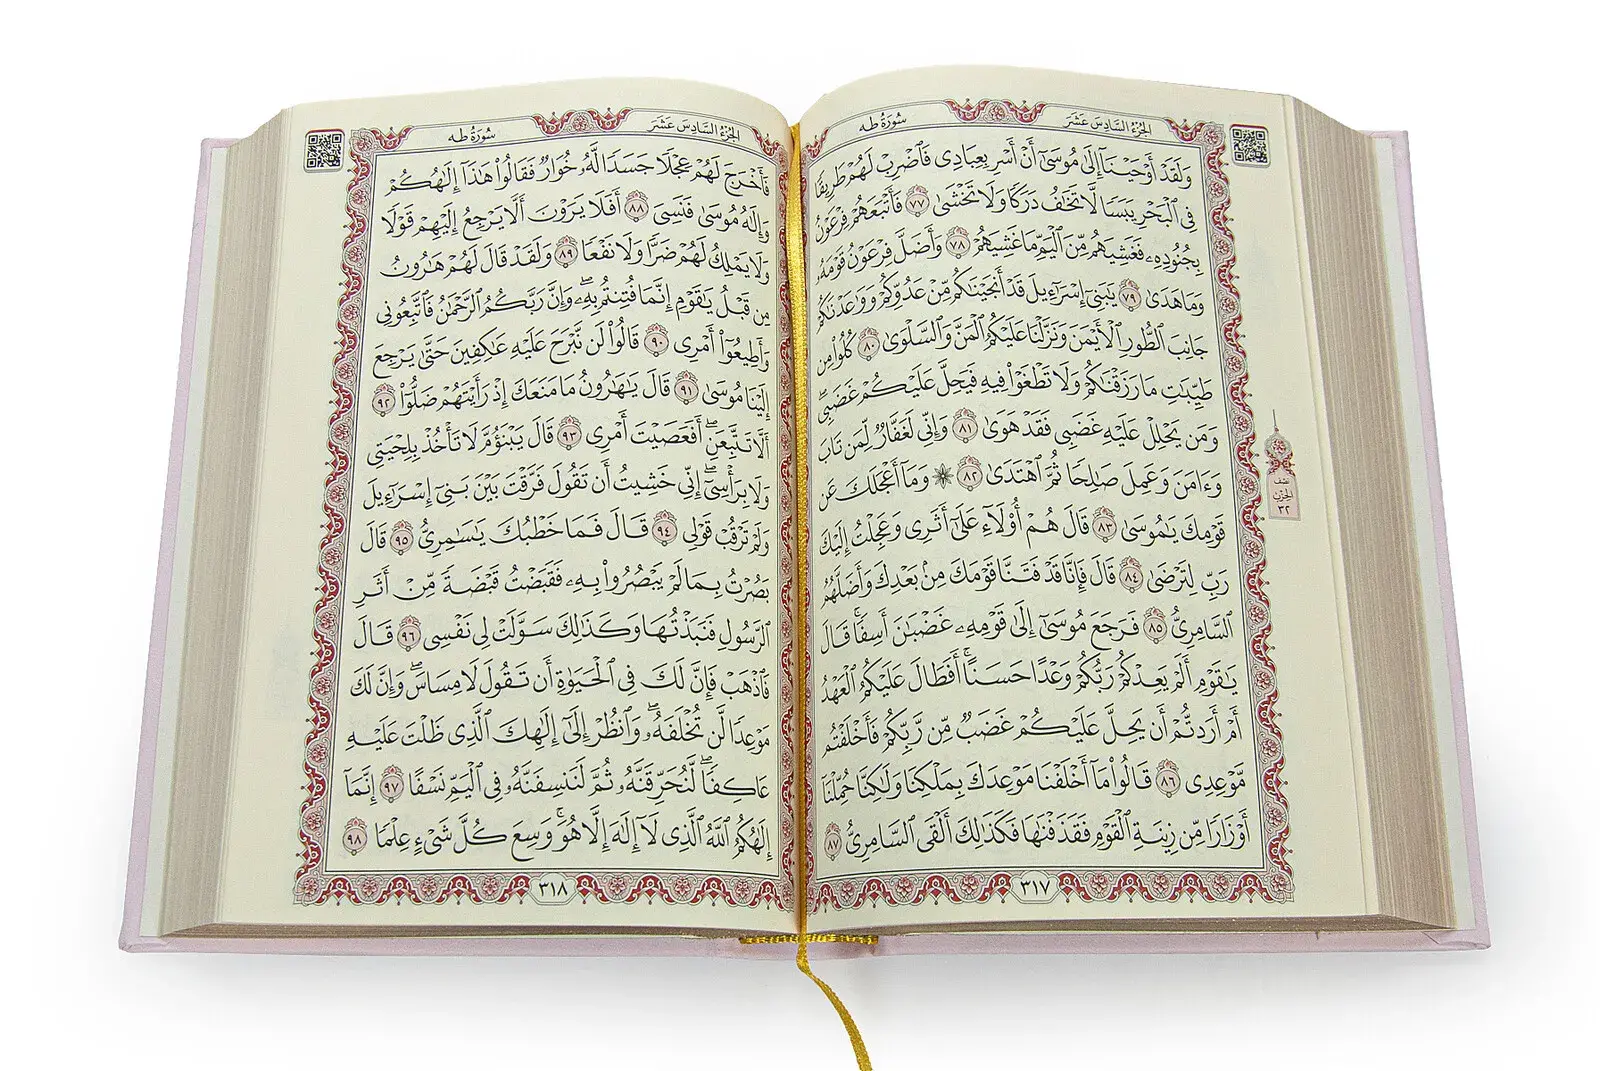 الجزء السادس عشر
سورة طه
وَلَقَدْ أَوْحَيْنَآ إِلَىٰ مُوسَىٰٓ أَنْ أَسْرِ بِعِبَادِى فَٱضْرِبْ لَهُمْ طَرِيقًا
فِى ٱلْبَحْرِ يَبَسًا لَّا تَخَٰفُ دَرَكًا وَلَا تَخْشَىٰ ٧٧ فَأَتْبَعَهُمْ فِرْعَوْنُ
بِجُنُودِهِۦ فَغَشِيَهُم مِّنَ ٱلْيَمِّ مَا غَشِيَهُمْ ٧٨ وَأَضَلَّ فِرْعَوْنُ قَوْمَهُۥ
وَمَا هَدَىٰ ٧٩ يَٰبَنِىٓ إِسْرَٰٓءِيلَ قَدْ أَنجَيْنَٰكُم مِّنْ عَدُوِّكُمْ وَوَٰعَدْنَٰكُمْ
جَانِبَ ٱلطُّورِ ٱلْأَيْمَنَ وَنَزَّلْنَا عَلَيْكُمُ ٱلْمَنَّ وَٱلسَّلْوَىٰ ٨٠ كُلُوا۟ مِن
طَيِّبَٰتِ مَا رَزَقْنَٰكُمْ وَلَا تَطْغَوْا۟ فِيهِ فَيَحِلَّ عَلَيْكُمْ غَضَبِى ۖ
وَمَن يَحْلِلْ عَلَيْهِ غَضَبِى فَقَدْ هَوَىٰ ٨١ وَإِنِّى لَغَفَّارٌ لِّمَن تَابَ
وَءَامَنَ وَعَمِلَ صَٰلِحًا ثُمَّ ٱهْتَدَىٰ ٨٢ ۞ وَمَآ أَعْجَلَكَ عَن
قَوْمِكَ يَٰمُوسَىٰ ٨٣ قَالَ هُمْ أُو۟لَآءِ عَلَىٰٓ أَثَرِى وَعَجِلْتُ إِلَيْكَ
رَبِّ لِتَرْضَىٰ ٨٤ قَالَ فَإِنَّا قَدْ فَتَنَّا قَوْمَكَ مِنۢ بَعْدِكَ وَأَضَلَّهُمُ
ٱلسَّامِرِىُّ ٨٥ فَرَجَعَ مُوسَىٰٓ إِلَىٰ قَوْمِهِۦ غَضْبَٰنَ أَسِفًا ۚ قَالَ
يَٰقَوْمِ أَلَمْ يَعِدْكُمْ رَبُّكُمْ وَعْدًا حَسَنًا ۚ أَفَطَالَ عَلَيْكُمُ ٱلْعَهْدُ
أَمْ أَرَدتُّمْ أَن يَحِلَّ عَلَيْكُمْ غَضَبٌ مِّن رَّبِّكُمْ فَأَخْلَفْتُم
مَّوْعِدِى ٨٦ قَالُوا۟ مَآ أَخْلَفْنَا مَوْعِدَكَ بِمَلْكِنَا وَلَٰكِنَّا حُمِّلْنَآ
أَوْزَارًا مِّن زِينَةِ ٱلْقَوْمِ فَقَذَفْنَٰهَا فَكَذَٰلِكَ أَلْقَى ٱلسَّامِرِىُّ ٨٧
نصف
الحزب
٣٢
٣١٧
الجزء السادس عشر
سورة طه
فَأَخْرَجَ لَهُمْ عِجْلًا جَسَدًا لَّهُۥ خُوَارٌ فَقَالُوا۟ هَٰذَآ إِلَٰهُكُمْ
وَإِلَٰهُ مُوسَىٰ فَنَسِىَ ٨٨ أَفَلَا يَرَوْنَ أَلَّا يَرْجِعُ إِلَيْهِمْ قَوْلًا
وَلَا يَمْلِكُ لَهُمْ ضَرًّا وَلَا نَفْعًا ٨٩ وَلَقَدْ قَالَ لَهُمْ هَٰرُونُ
مِن قَبْلُ يَٰقَوْمِ إِنَّمَا فُتِنتُم بِهِۦ ۖ وَإِنَّ رَبَّكُمُ ٱلرَّحْمَٰنُ فَٱتَّبِعُونِى
وَأَطِيعُوٓا۟ أَمْرِى ٩٠ قَالُوا۟ لَن نَّبْرَحَ عَلَيْهِ عَٰكِفِينَ حَتَّىٰ يَرْجِعَ
إِلَيْنَا مُوسَىٰ ٩١ قَالَ يَٰهَٰرُونُ مَا مَنَعَكَ إِذْ رَأَيْتَهُمْ ضَلُّوٓا۟ ٩٢
أَلَّا تَتَّبِعَنِ ۖ أَفَعَصَيْتَ أَمْرِى ٩٣ قَالَ يَبْنَؤُمَّ لَا تَأْخُذْ بِلِحْيَتِى
وَلَا بِرَأْسِىٓ ۖ إِنِّى خَشِيتُ أَن تَقُولَ فَرَّقْتَ بَيْنَ بَنِىٓ إِسْرَٰٓءِيلَ
وَلَمْ تَرْقُبْ قَوْلِى ٩٤ قَالَ فَمَا خَطْبُكَ يَٰسَٰمِرِىُّ ٩٥ قَالَ
بَصُرْتُ بِمَا لَمْ يَبْصُرُوا۟ بِهِۦ فَقَبَضْتُ قَبْضَةً مِّنْ أَثَرِ
ٱلرَّسُولِ فَنَبَذْتُهَا وَكَذَٰلِكَ سَوَّلَتْ لِى نَفْسِى ٩٦ قَالَ
فَٱذْهَبْ فَإِنَّ لَكَ فِى ٱلْحَيَوٰةِ أَن تَقُولَ لَا مِسَاسَ ۖ وَإِنَّ لَكَ
مَوْعِدًا لَّن تُخْلَفَهُۥ ۖ وَٱنظُرْ إِلَىٰٓ إِلَٰهِكَ ٱلَّذِى ظَلْتَ عَلَيْهِ
عَاكِفًا ۖ لَّنُحَرِّقَنَّهُۥ ثُمَّ لَنَنسِفَنَّهُۥ فِى ٱلْيَمِّ نَسْفًا ٩٧ إِنَّمَآ
إِلَٰهُكُمُ ٱللَّهُ ٱلَّذِى لَآ إِلَٰهَ إِلَّا هُوَ ۚ وَسِعَ كُلَّ شَىْءٍ عِلْمًا ٩٨
٣١٨